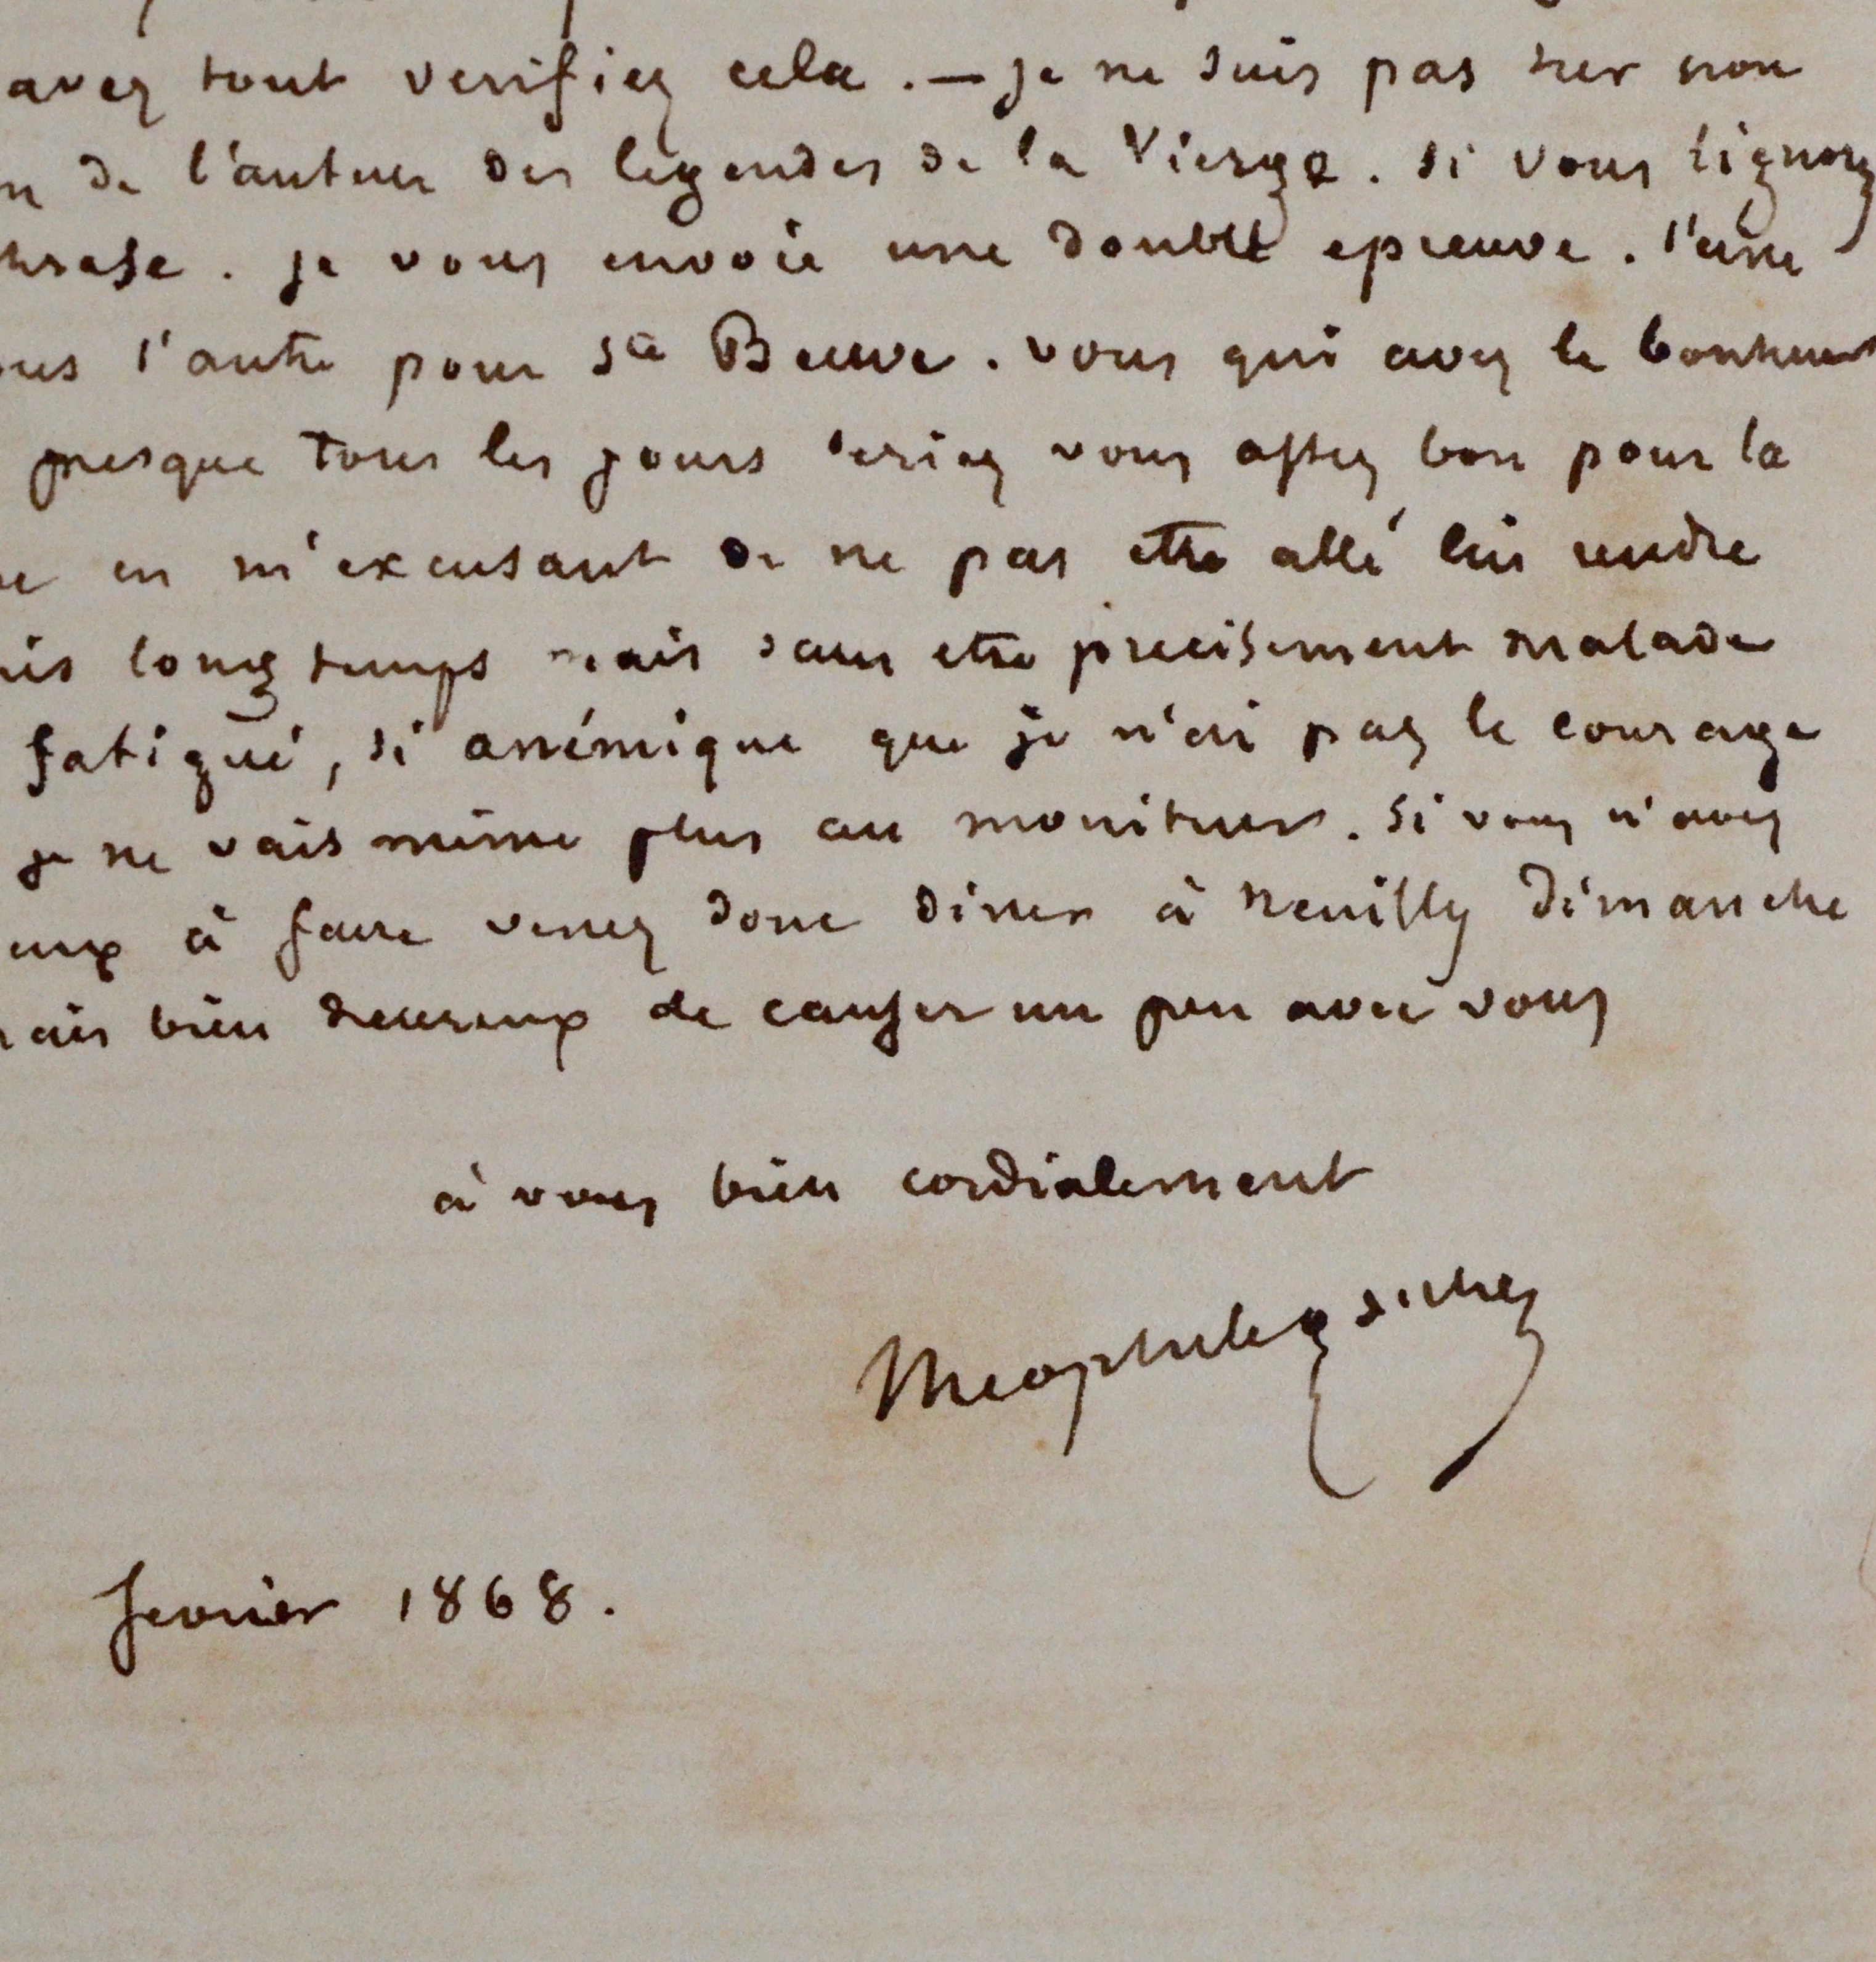 avez tout verifiez cela . — je ne suis pas sur non
n de l'auteur des legendes de la Vierge . si vous l'ignorez
hrase . je vous envoie une double epreuve . l'une
ous l'autre pour Ste Beuve . vous qui avez le bonheur
presque tous les jours seriez vous assez bon pour la
e en m'excusant de ne pas etre allé lui rendre
uis longtemps mais sans etre precisement malade
fatigué, si anémique que je n'ai pas le courage
je ne vais même plus au moniteur. si vous n'avez
eux à faire venez donc diner à Neuilly dimanche
rais bien heureux de causer un peu avec vous
à vous bien cordialement
Theophile Gautier
fevrier 1868.